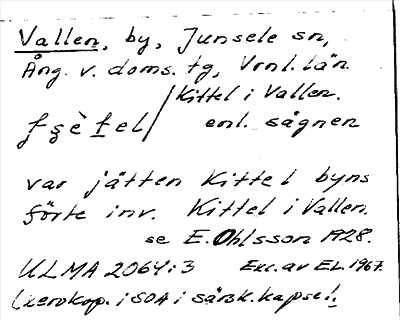 Vallen, by, Junsele sn,
Ång. v. doms. tg, Vrnl. län.
fşètel / Kittel i Vallen.
enl. sägnen
var jätten Kittel byns
förte inv. Kittel i Vallen.
se E. Ohlsson 1928.
ULMA 2064:3 Exc. av EL. 1967.
(xerokop. i SOA i särsk. kapsel.